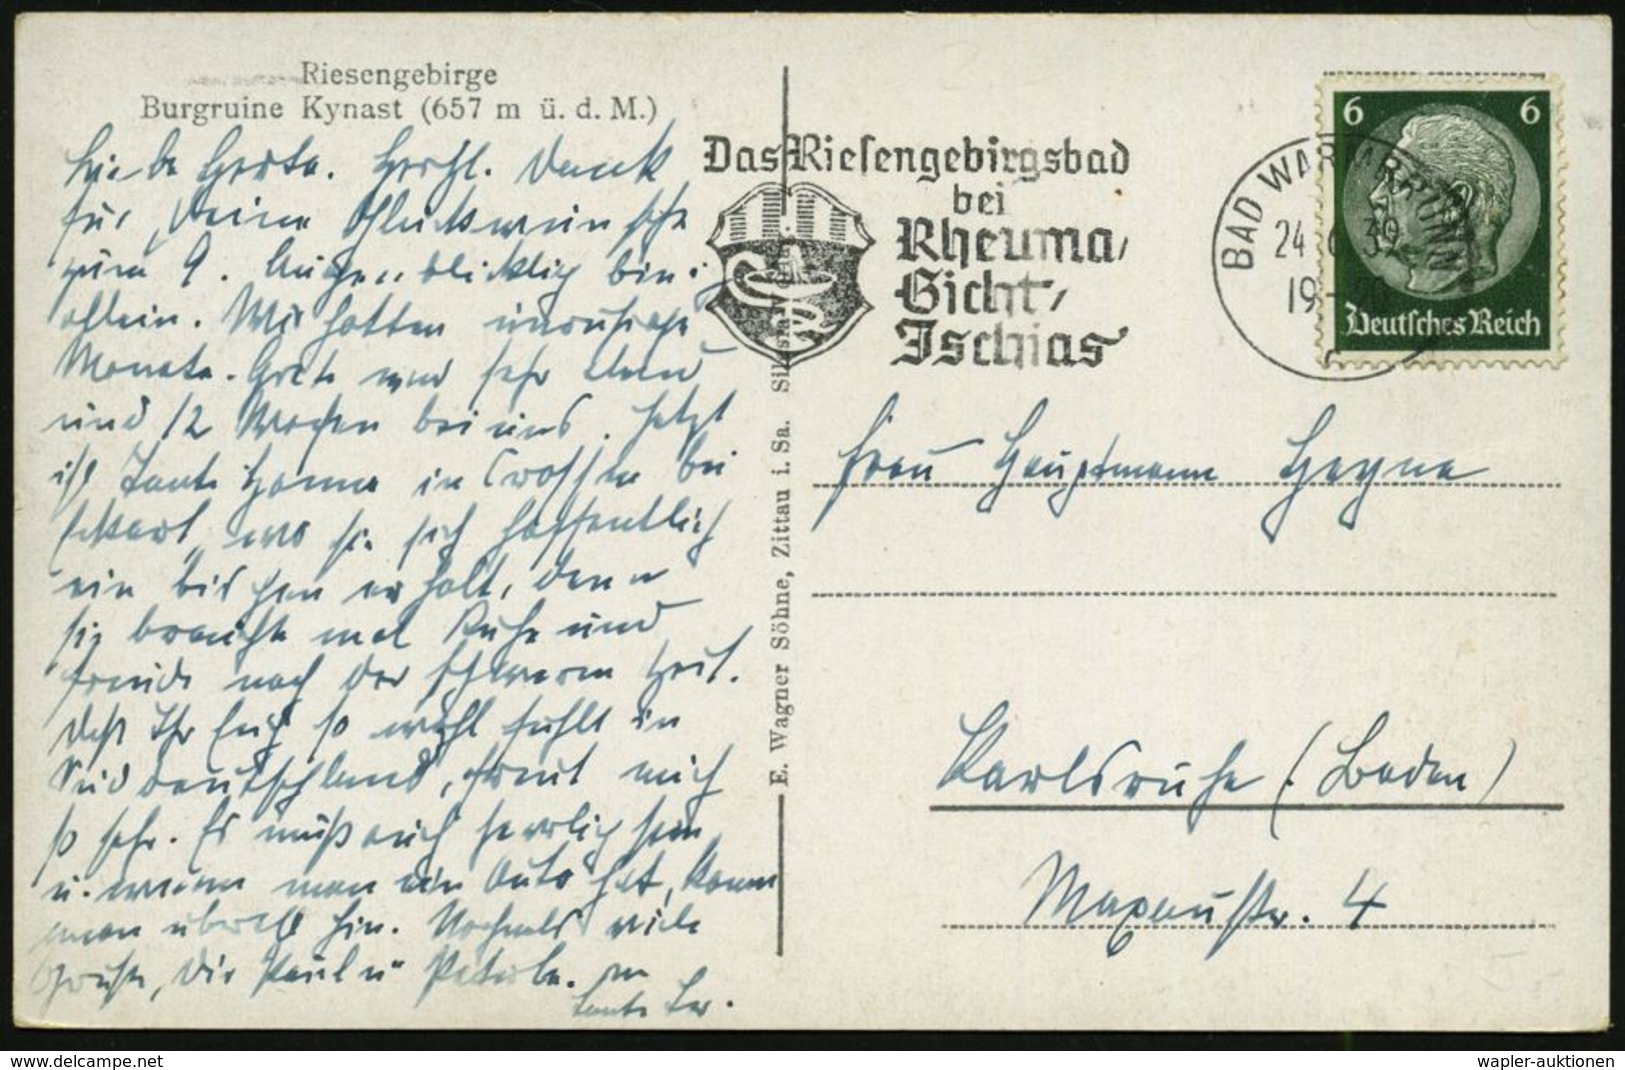 Riesengebirge
Burgruine Kynast (657 m ü. d. M.)
Liebe Herta. Herzl. Dank
für Deine Glückwünsche
zum 9. Augenblicklich bin i
allein. Wir hatten unruhige
Monate. Grete war sehr elend
und 12 Wochen bei uns. Jetzt
ist Tante Hanna in Crossen bei
Eckart, wo sie sich hoffentlich
ein bischen erholt, denn
sie braucht mal Ruhe und
Freude nach der schweren Zeit.
Daß Ihr Euch so wohl fühlt in
Süddeutschland, freut mich
so sehr. Es muß auch herrlich sein
u. wenn man ein Auto hat, kann
man überall hin. Nochmals viele
Grüße, Dir Paul u
Tante
E. Wagner Söhne, Zittau i. Sa.
Das Riesengebirgsbad
bei
Rheuma,
Gicht,
Ischias
BAD WARMBRUNN
24
19-20
6 6
Deutsches Reich
Frau Hauptmann Heyne
Karlsruhe (Baden)
Maxaustr. 4
www.delcampe.net
wapler-auktionen